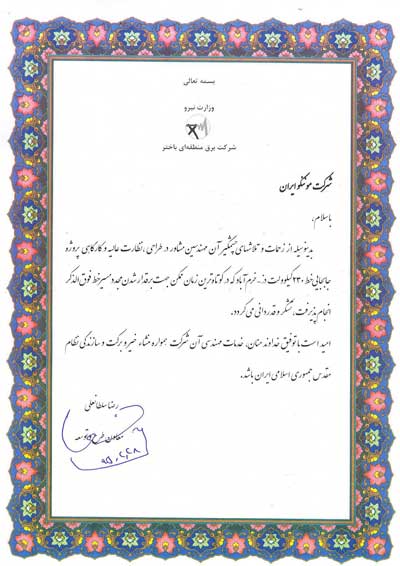 بسمه تعالی
وزارت نیرو
شرکت برق منطقه‌ای باختر
شرکت موننکو ایران
باسلام،
بدینوسیله از زحمات و تلاشهای چشمگیر آن مهندسین مشاور در طراحی، نظارت عالیه و کارگاهی پروژه
جابجایی خط ۲۳۰ کیلوولت دز - خرم آباد که در کوتاه‌ترین زمان ممکن جهت برقدار شدن مجدد مسیر خط فوق الذکر
انجام پذیرفت، تشکر و قدردانی می گردد.
امید است با توفیق خداوند منان، خدمات مهندسی آن شرکت همواره منشاء خیر و برکت و سازندگی نظام
مقدس جمهوری اسلامی ایران باشد.
رضا سلطانعلی
معاون طرح و توسعه